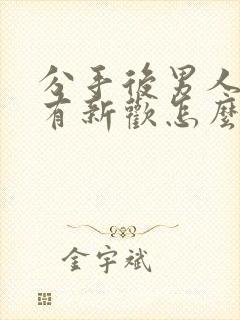 分手後男人
有新歡怎麼
金宇斌